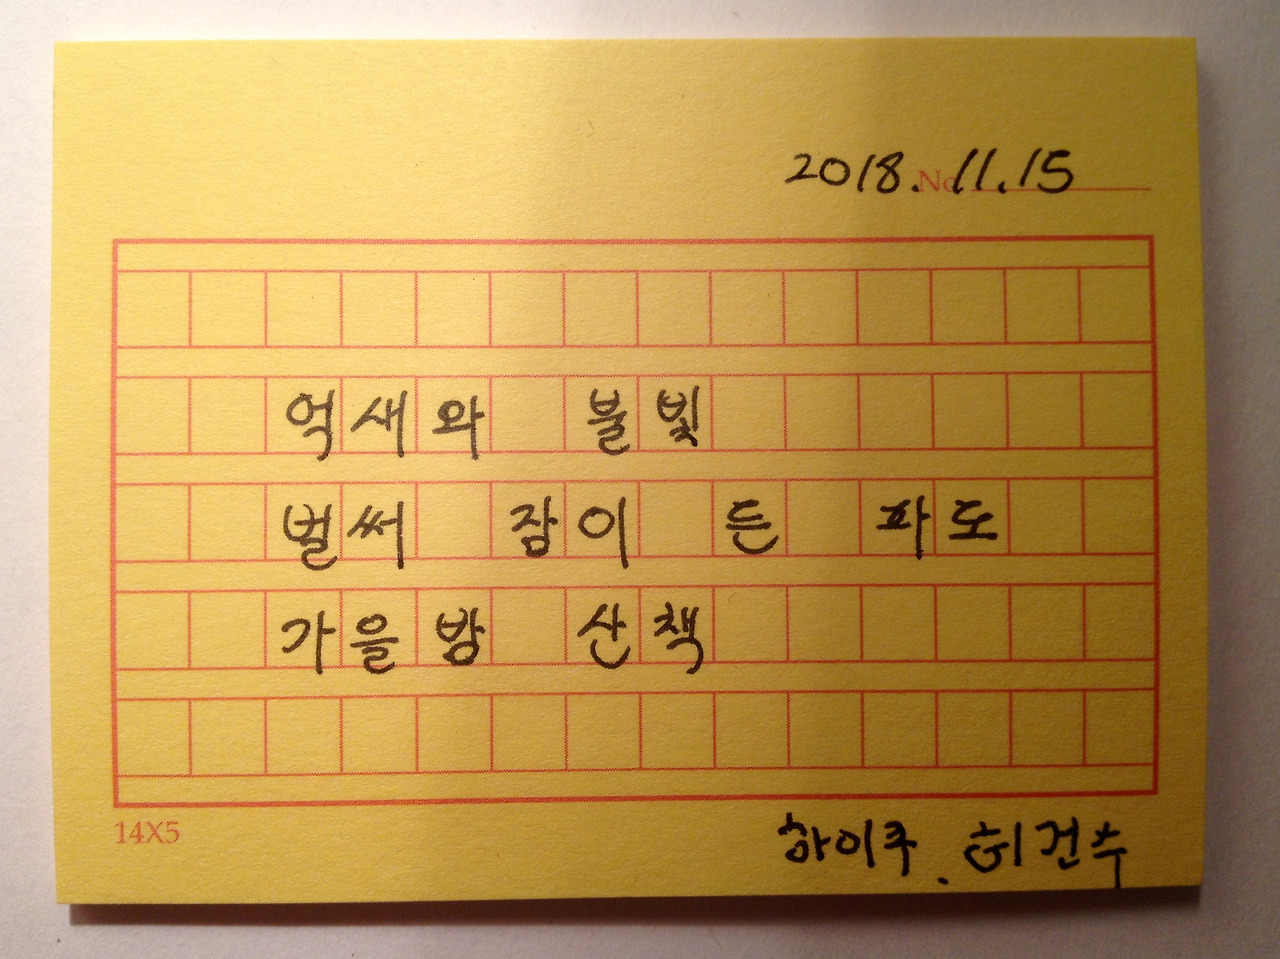 2018. No 11.15
억새와 불빛
벌써 잠이 든 파도
가을밤 산책
14X5
하이쿠. 허건수